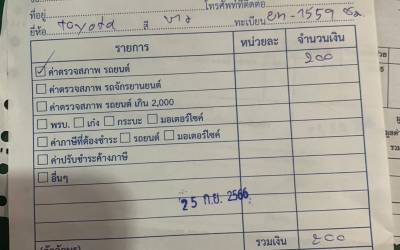 ที่อยู่ โทรศัพท์ที่ติดต่อ
ยี่ห้อ toyota สี ขาว ทะเบียน 1559
รายการ หน่วยละ จำนวนเงิน
ค่าตรวจสภาพ รถยนต์ 200
ค่าตรวจสภาพ รถจักรยานยนต์
ค่าตรวจสภาพ รถยนต์ เกิน 2,000
พรบ. เก๋ง กระบะ มอเตอร์ไซค์
ค่าภาษีที่ต้องชำระ รถยนต์ มอเตอร์ไซค์
ค่าปรับชำระค้างภาษี
อื่นๆ
25 ก.ย. 2566
รวมเงิน 200